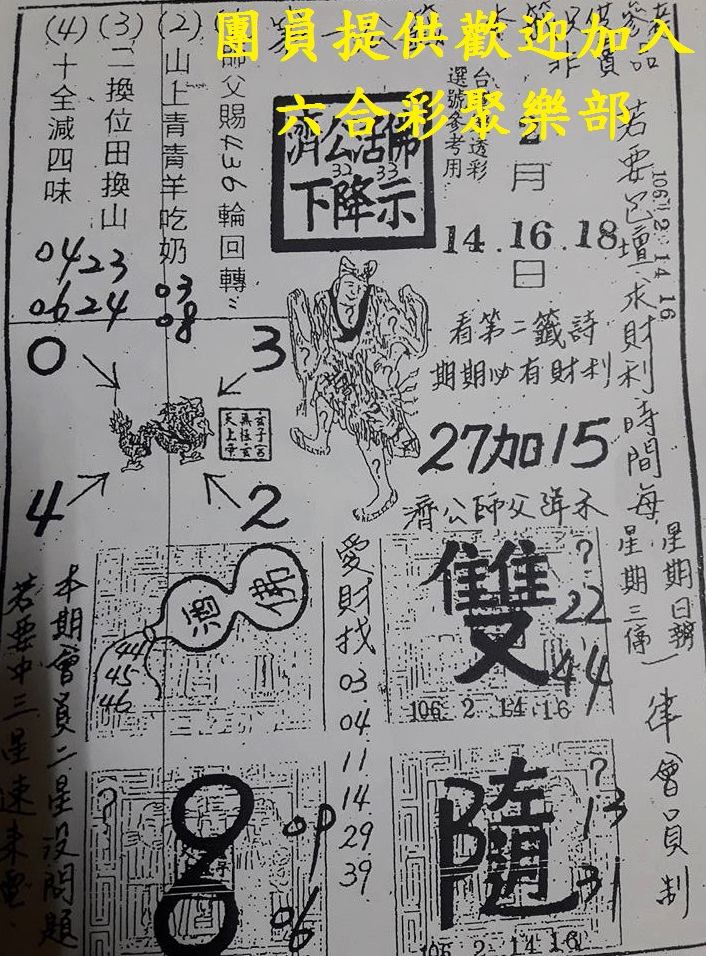 團員提供歡迎加入
六合彩聚樂部
濟公活佛
32 33
下降示
選號參考用
2月
14.16.18
日
師父賜4436輪回轉
(2)山上青青羊吃奶
03
08
(3)二換位田換山
23
24
(4)十全減四味
04
06
若要已壇求財利時間每
星期日辦
星期三停
106 2 14 16
律會員制
看第二籤詩
期期必有財利
27加15
濟公師父降示
0
3
4
2
愛財找
03
04
11
14
29
39
濟
佛
44
45
46
雙
?
22
44
106. 2 14.16
?
09
06
隨
?
13
31
106 2 14 16
本期會員二星沒問題
若要中三星速來電